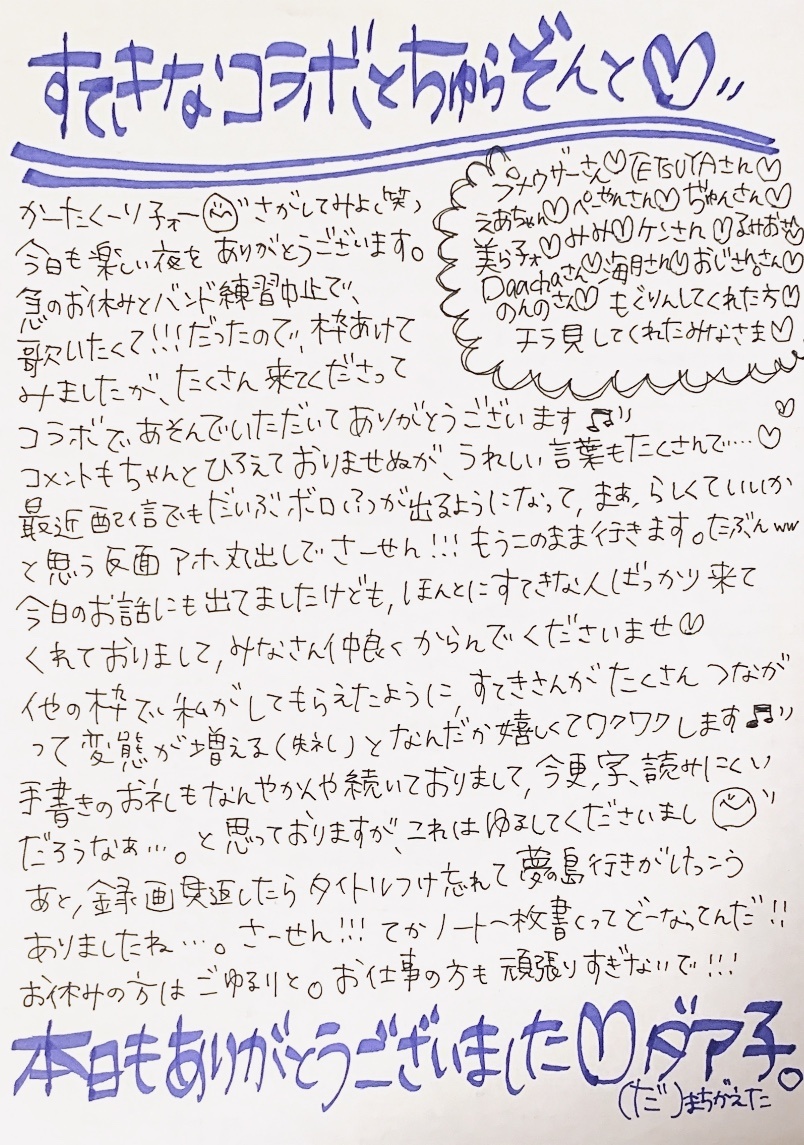 すてきなコラボとちゅらぞんと♡
かーたくーり子ォー さがしてみよ(笑)
今日も楽しい夜を ありがとうございます。
急のお休みとバンド練習中止で、
歌いたくて!!!だったので、枠あけて
みましたが、たくさん来てくださって
コラボであそんでいただいてありがとうございます♫
プメウザーさん♡TETSUYAさん♡
えあちゃん♡ぺーやんさん♡ぢゃんさん♡
美ら子ォ♡みみ♡ケンさん♡るみお♡
Daachaさん♡海月さん♡おじさんさん♡
のんのさん♡もぐりんしてくれた方♡
チラ見してくれたみなさま♡
コメントもちゃんとひろえておりませぬが、うれしい言葉もたくさんで…♡
最近配信でもだいぶボロ(?)が出るようになって、まぁ、らしくていいか
と思う反面アホ丸出しでさーせん!!!もうこのまま行きます。たぶんww
今日のお話にも出てましたけども,ほんとにすてきな人ばっかり来て
くれておりまして,みなさん仲良くからんでくださいませ♡
他の枠で私がしてもらえたように,すてきさんがたくさんつなが
って変態が増える(失礼)となんだか嬉しくてワクワクします♫
手書きのお礼もなんやかんや続いておりまして,今更,字、読みにくい
だろうなぁ…。と思っておりますが、これはゆるしてくださいまし
あと,録画見返したらタイトルつけ忘れて夢の島行きがけっこう
ありましたね…。さーせん!!!てかノート一枚書くってどーなってんだ!!
お休みの方はごゆるりと。お仕事の方も頑張りすぎないで!!!
本日もありがとうございました♡ダア子。
(だ)まちがえた